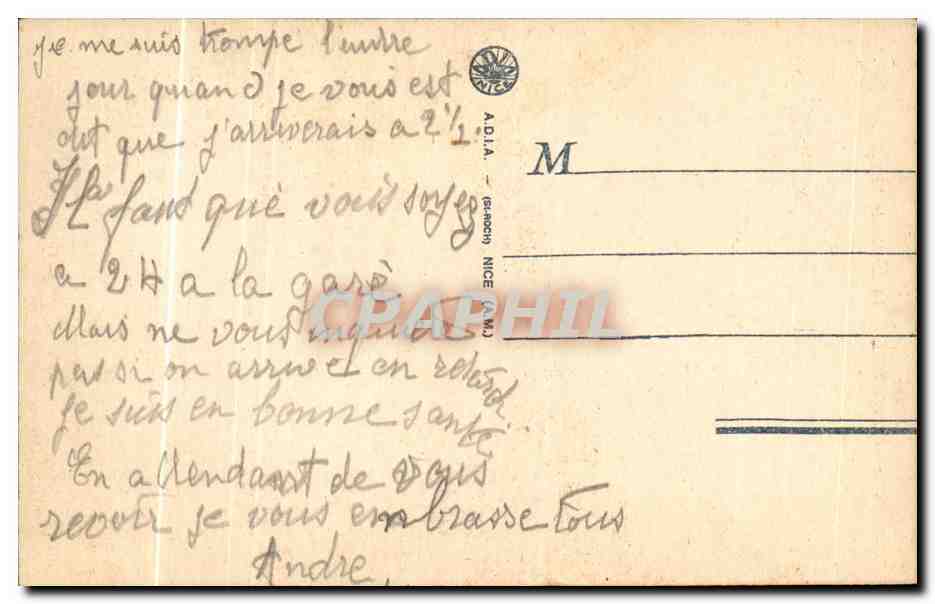 je me suis trompe l'autre
jour quand je vous est
dit que j'arriverais a 2 1/2.
Il faut que vous soyez
a 2 H a la gare
Mais ne vous inquiete
pas si on arrive en retard.
Je suis en bonne santé..
En attendant de vous
revoir je vous embrasse tous
Andre.
NICE
A.D.I.A. - (St-ROCH) NICE (A.M.)
M
CPARHIL